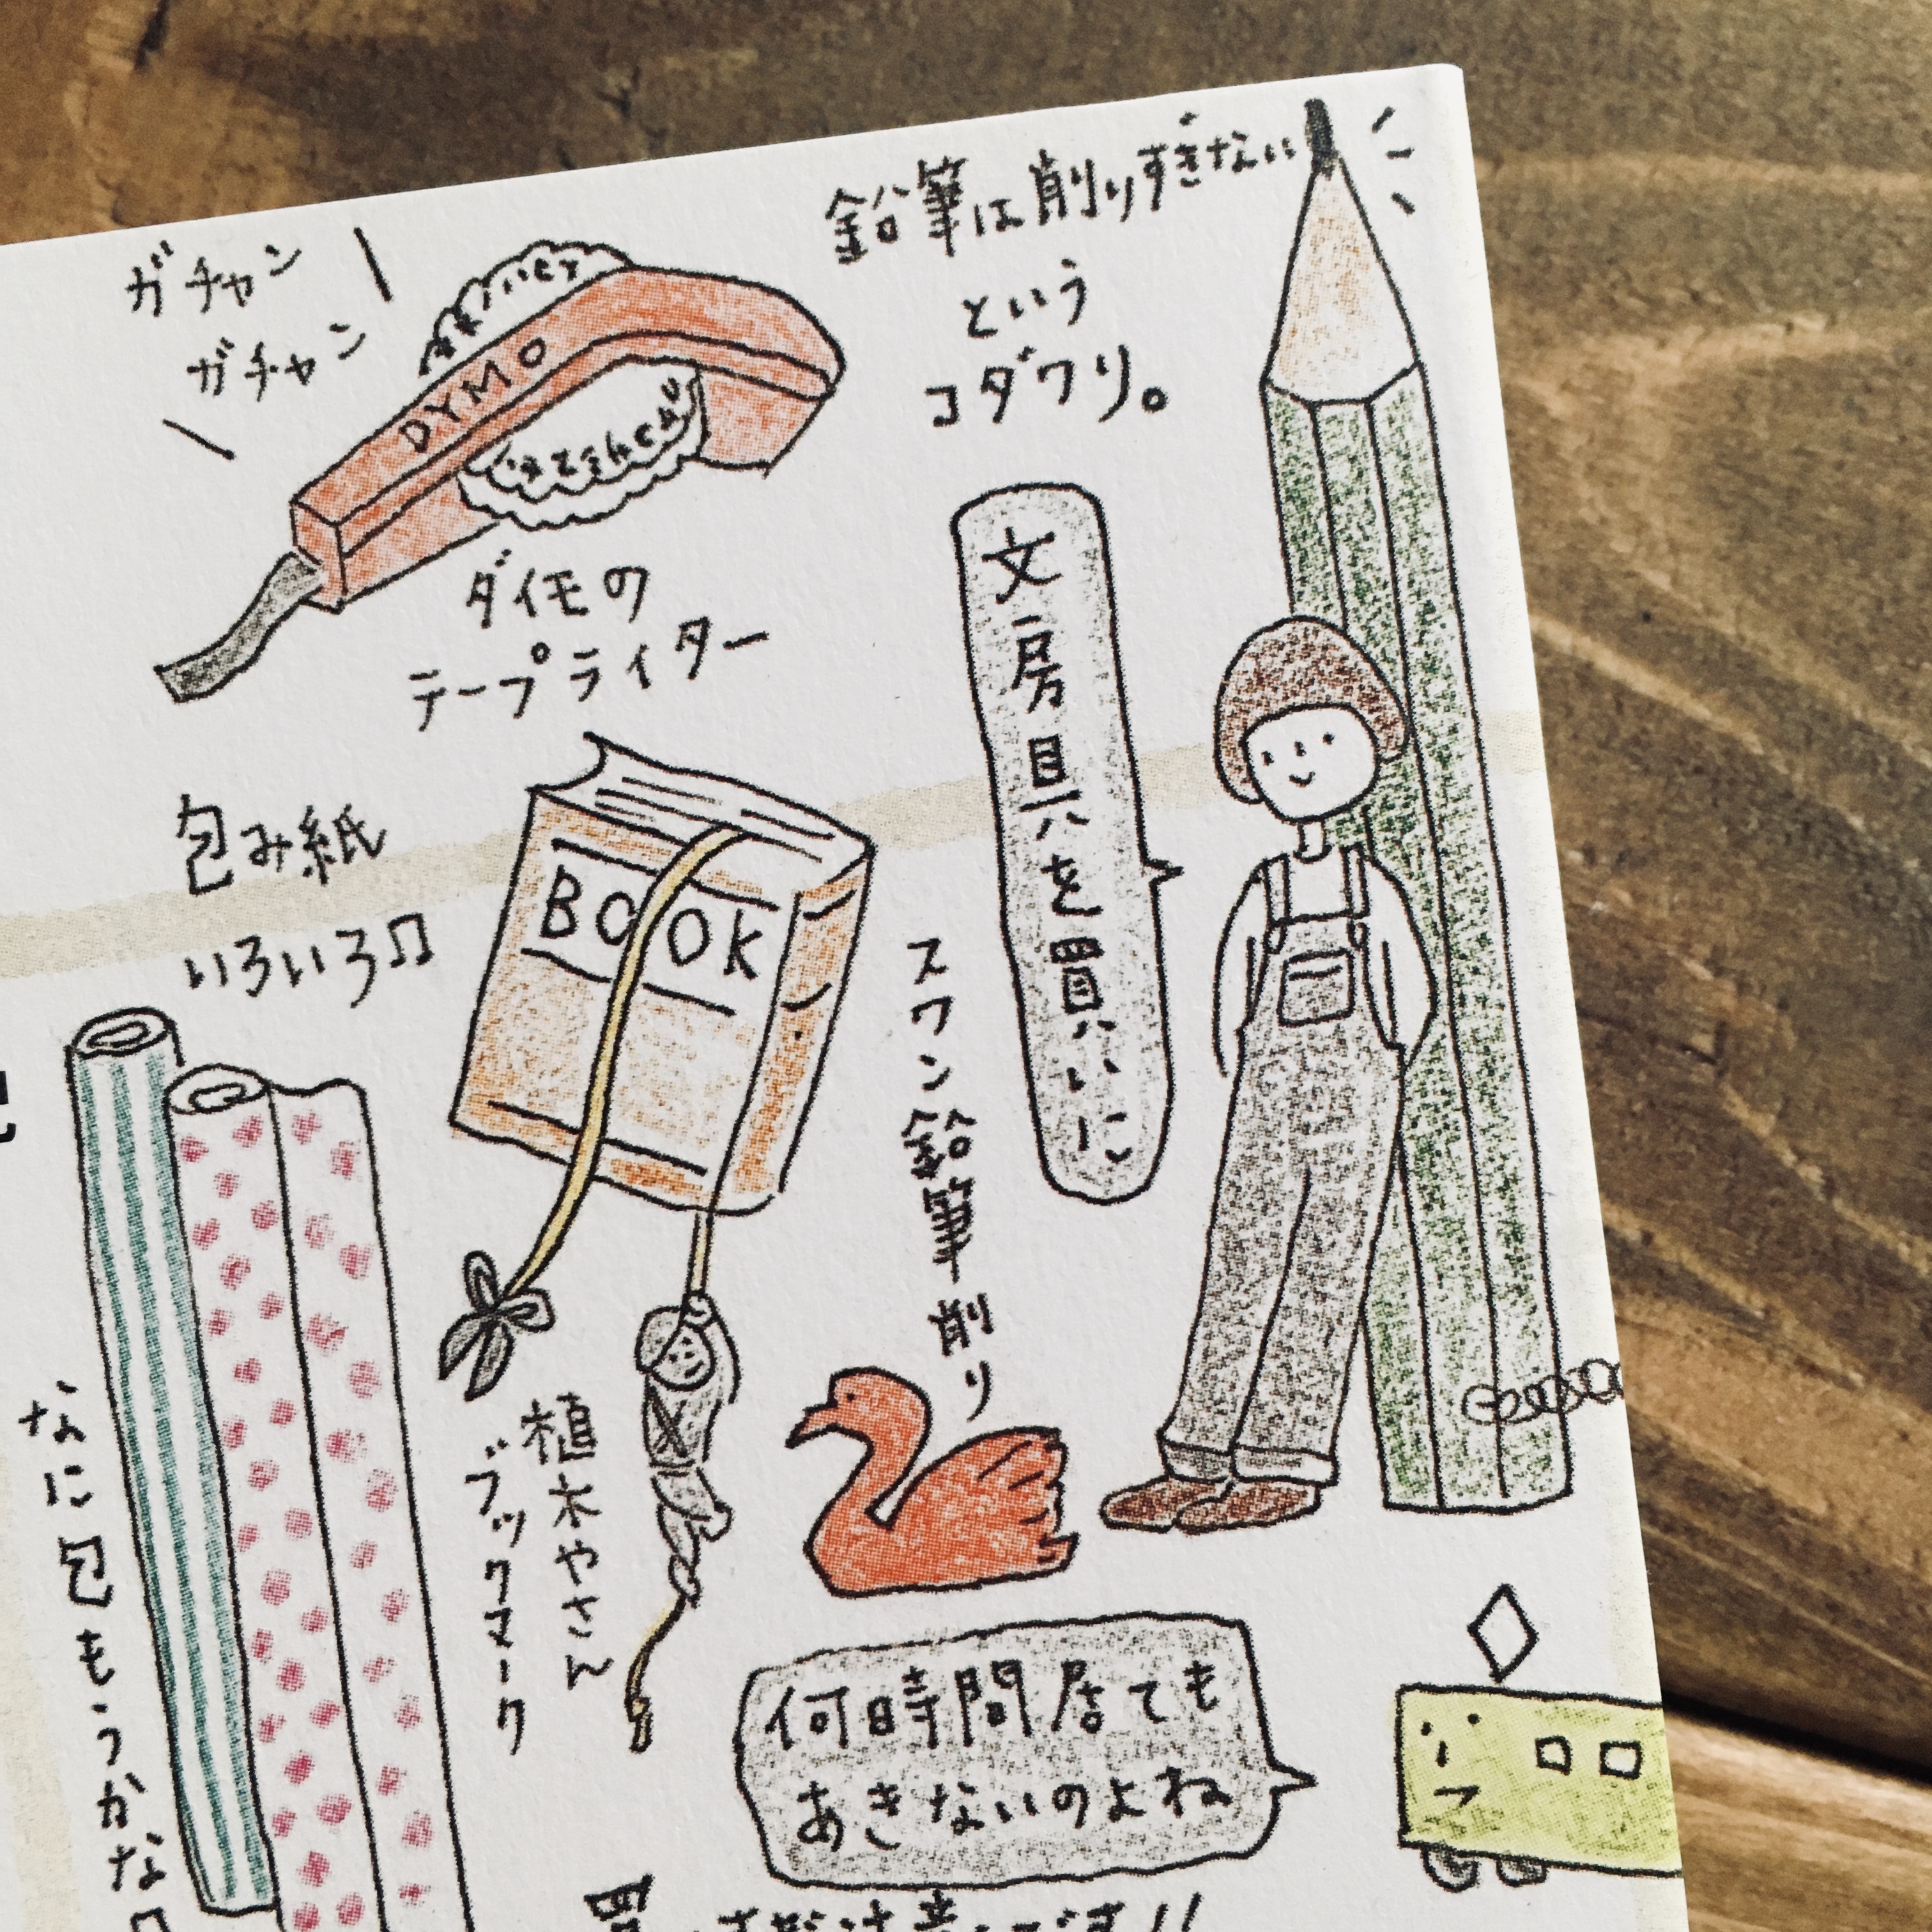 鉛筆は削りすぎない
という
コダワリ。
ガチャン
ガチャン
DYMO
ダイモの
テープライター
文房具を買いに
包み紙
いろいろ♫
BOOK
スワン鉛筆削り
植木やさん
ブックマーク
なに包もうかな
何時間居ても
あきないのよね